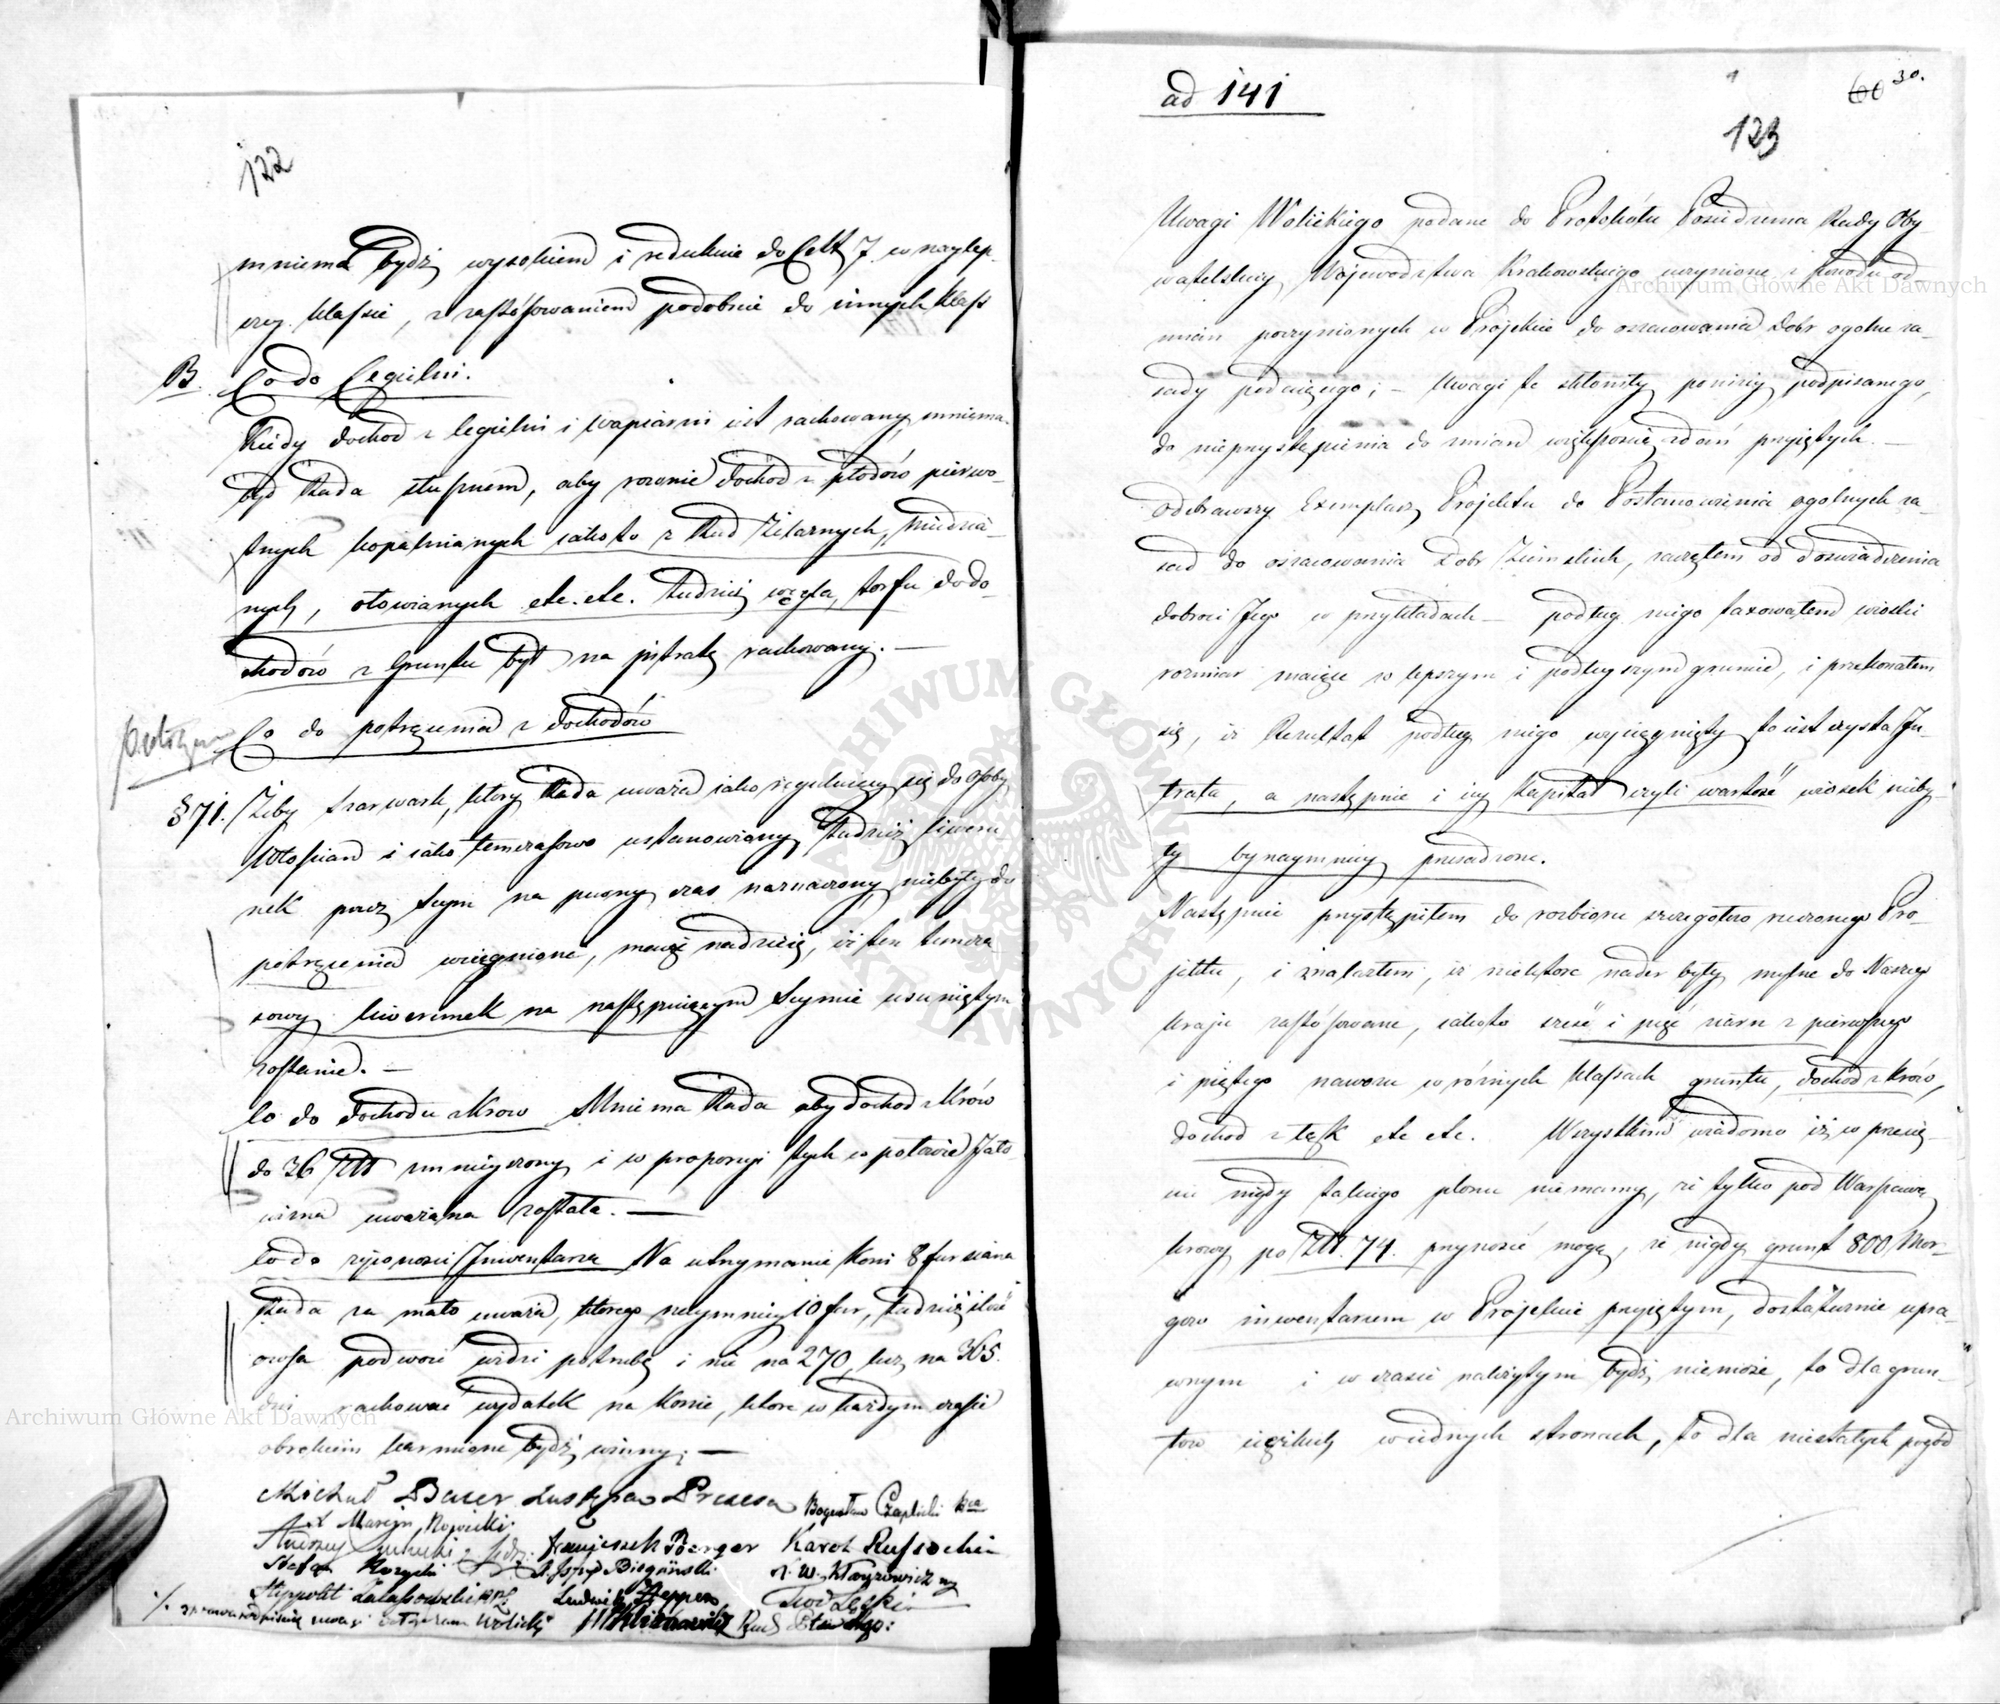 122
mniema bydź wysokiem i redukuie do Cett 7. w naylep-
szey klassie, z zastósowaniem podobnie do innych klass
B. Co do Cegielni.
Kiedy dochod z Cegielni i Wapiarni iest rachowany, mniema-
Rada słusznem, aby rownie dochód z płodów pierwo-
tnych kopalnianych iakoto z Rud Żelaznych, miedzia-
nych, ołowianych etc. etc. tudzież węgla, torfu do do-
chodów z Gruntu był na intratę rachowany. —
Co do potrącenia z dochodów
§ 71. Żeby szarwark, który Rada uważa iako regulujący się do osoby
Włościan i iako temczasowo ustanowiany, tudzież liweru-
nek przez Seym na pewny czas naznaczony, niebyły do
potrącenia wciągnione, maiąc nadzieię, iż ten tymcza-
sowy liwerunek na następuiącym Seymie usuniętym
zostanie. —
Co do dochodu z Krow Mniema Rada aby dochod z Krów
do 36 Złł zmnieyszony i w proporcyi tych w połowie Jało-
wizna uważana została. —
Co do żywności Jnwentarza Na utrzymanie Koni 8 fur siana
Rada za mało uważa, którego naymniey 10 fur, tudzież ilość
owsa podwoić widzi potrzebę i nie na 270, lecz na 365.
dni rachować wydatek na Konie, które w każdym czasie
obrokiem karmione bydź winny. —
Michał Bauer Zastępca Prezesa Bogusław Czaplicki
Franciszek Poenger Karol Russocki
Ludwik
ad 141
60 30.
123
Uwagi Wolickiego podane do Protokółu Posiedzenia Rady Oby-
watelskiey Województwa Krakowskiego uczynione z powodu od-
mian poczynionych w Projekcie do oszacowania Dobr ogolne za-
sady podaiącego; — Uwagi te skłoniły poniżey podpisanego,
do nieprzystąpienia do zmian większością zdań przyiętych. —
Odebrawszy Exemplarz Projektu do Postanowienia ogolnych za-
sad do oszacowania Dobr Ziemskich, zacząłem od doswiadczenia
dobroci Jego w przykładach — podług niego taxowałem wioski
rozmiar maiące w lepszym i podleyszym gruncie, i przekonałem
się, iż Rezultat podług niego wyciągnięty to iest czysta In-
trata, a następnie i iey Kapitał czyli wartość wiosek nieby-
ły bynaymniey przesadzone.
Następnie przystąpiłem do rozbioru szczegółów rzeczonego Pro-
jektu, i znalazłem, iż niektóre nader były mylne do Naszego
kraju zastosowane, iakoto sześć i pięć ziarn z pierwszego
i piątego nawozu w różnych klassach gruntu, dochod z krów,
dochod z łąk etc etc. Wszystkim wiadomo iż w przecię-
ciu nigdy takiego plonu niemamy, że tylko pod Warszawą
krowy po Złł. 74. przynosić mogą, że nigdy grunt 800 Mor-
gów inwentarzem w Projekcie przyiętym, dostatecznie upra-
wnym i w czasie należytym bydź niemoże, to dla grun-
tow ciężkich w iednych stronach, to dla niestałych pogód
Archiwum Główne Akt Dawnych
Archiwum Główne Akt Dawnych
ARCHIWUM GŁÓWNE AKT DAWNYCH